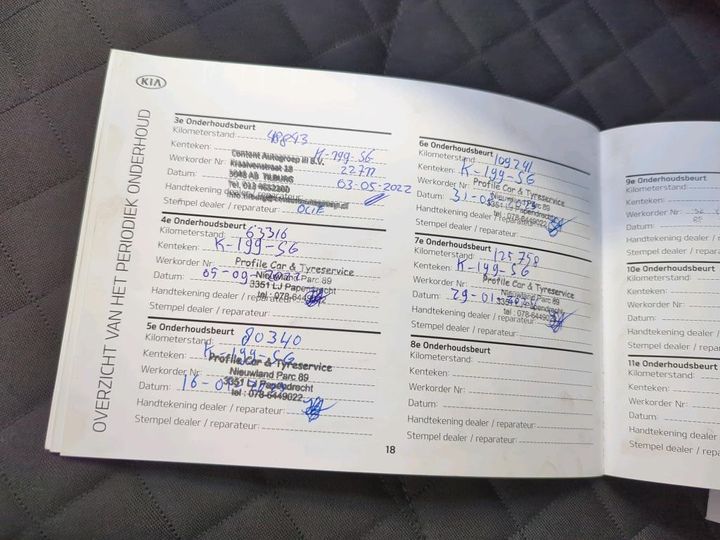 KIA
OVERZICHT VAN HET PERIODIEK ONDERHOUD
3e Onderhoudsbeurt
Kilometerstand:
Kenteken: K-199-SG
Content Autogroep III B.V.
Werkorder Nr: 22777
Kraaivenstraat 28
5048 AB TILBURG
Datum: 03-05-2022
Tel. 013 4632200
Handtekening dealer / reparateur:
Stempel dealer / reparateur: OCIE
4e Onderhoudsbeurt
Kilometerstand: 63316
Kenteken: K-199-SG
Werkorder Nr:
Profile Car & Tyreservice
Nieuwland Parc 89
3351 LJ Papendrecht
tel : 078-6449022
Datum: 05-09-2022
Handtekening dealer / reparateur:
Stempel dealer / reparateur:
5e Onderhoudsbeurt
Kilometerstand: 80340
Kenteken: K-199-SG
Profile Car & Tyreservice
Werkorder Nr:
Nieuwland Parc 89
3351 LJ Papendrecht
tel : 078-6449022
Datum: 16-0
Handtekening dealer / reparateur:
Stempel dealer / reparateur:
6e Onderhoudsbeurt
Kilometerstand: 109241
Kenteken: K-199-SG
Profile Car & Tyreservice
Werkorder Nr:
Nieuwland Parc 89
3351 LJ Papendrecht
tel : 078-6449022
Datum: 31-0
Handtekening dealer / reparateur:
Stempel dealer / reparateur:
7e Onderhoudsbeurt
Kilometerstand: 125758
Kenteken: K-199-SG
Profile Car & Tyreservice
Werkorder Nr:
Nieuwland Parc 89
3351 LJ Papendrecht
tel : 078-6449022
Datum: 29-01
Handtekening dealer / reparateur:
Stempel dealer / reparateur:
8e Onderhoudsbeurt
Kilometerstand:
Kenteken:
Werkorder Nr:
Datum:
Handtekening dealer / reparateur:
Stempel dealer / reparateur:
18
9e Onderhoudsbeurt
Kilometerstand:
Kenteken:
Werkorder Nr:
Datum:
Handtekening dealer
Stempel dealer / rep
10e Onderhoudsbeurt
Kilometerstand:
Kenteken:
Werkorder Nr:
Datum:
Handtekening dealer
Stempel dealer /
11e Onderhoudsbeurt
Kilometerstand:
Kenteken:
Werkorder Nr:
Datum:
Handtekening dealer
Stempel dealer / repar